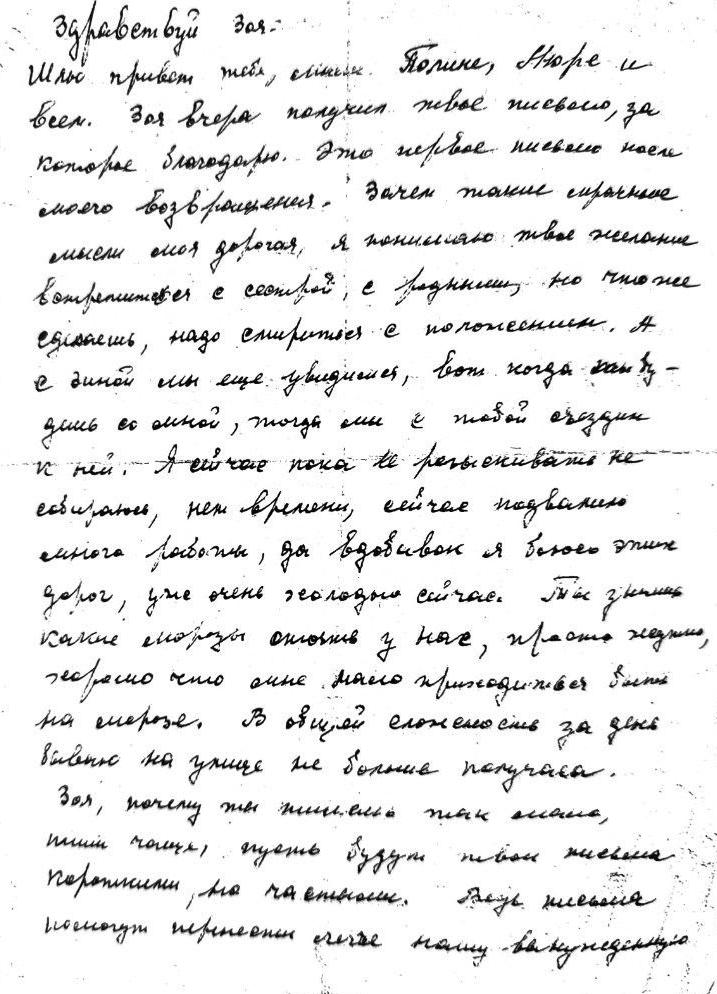 Здравствуй Зоя.
Шлю привет тебе, Полине, Нюре и
всем. Зоя вчера получил твое письмо, за
которое благодарю. Это первое письмо после
моего возвращения. Зачем такие мрачные
мысли моя дорогая, я понимаю твое желание
встретиться с сестрой, с родными, но что же
сделаешь, надо смириться с положением. А
с Зиной мы еще увидимся, вот когда бу-
дешь со мной, тогда мы с тобой съездим
к ней. Я сейчас пока ее разыскивать не
собираюсь, нет времени, сейчас подвалило
много работы, да вдобавок я боюсь этих
дорог, уже очень холодно сейчас. Ты знаешь
какие морозы стоят у нас, просто жутко,
хорошо что мне мало приходиться быть
на морозе. В общей сложность за день
бываю на улице не больше получаса.
Зоя, почему ты пишешь так мало,
пиши чаще, пусть будут твои письма
короткими, но частыми. Ведь письма
помогут перенести легче нашу вынужденную